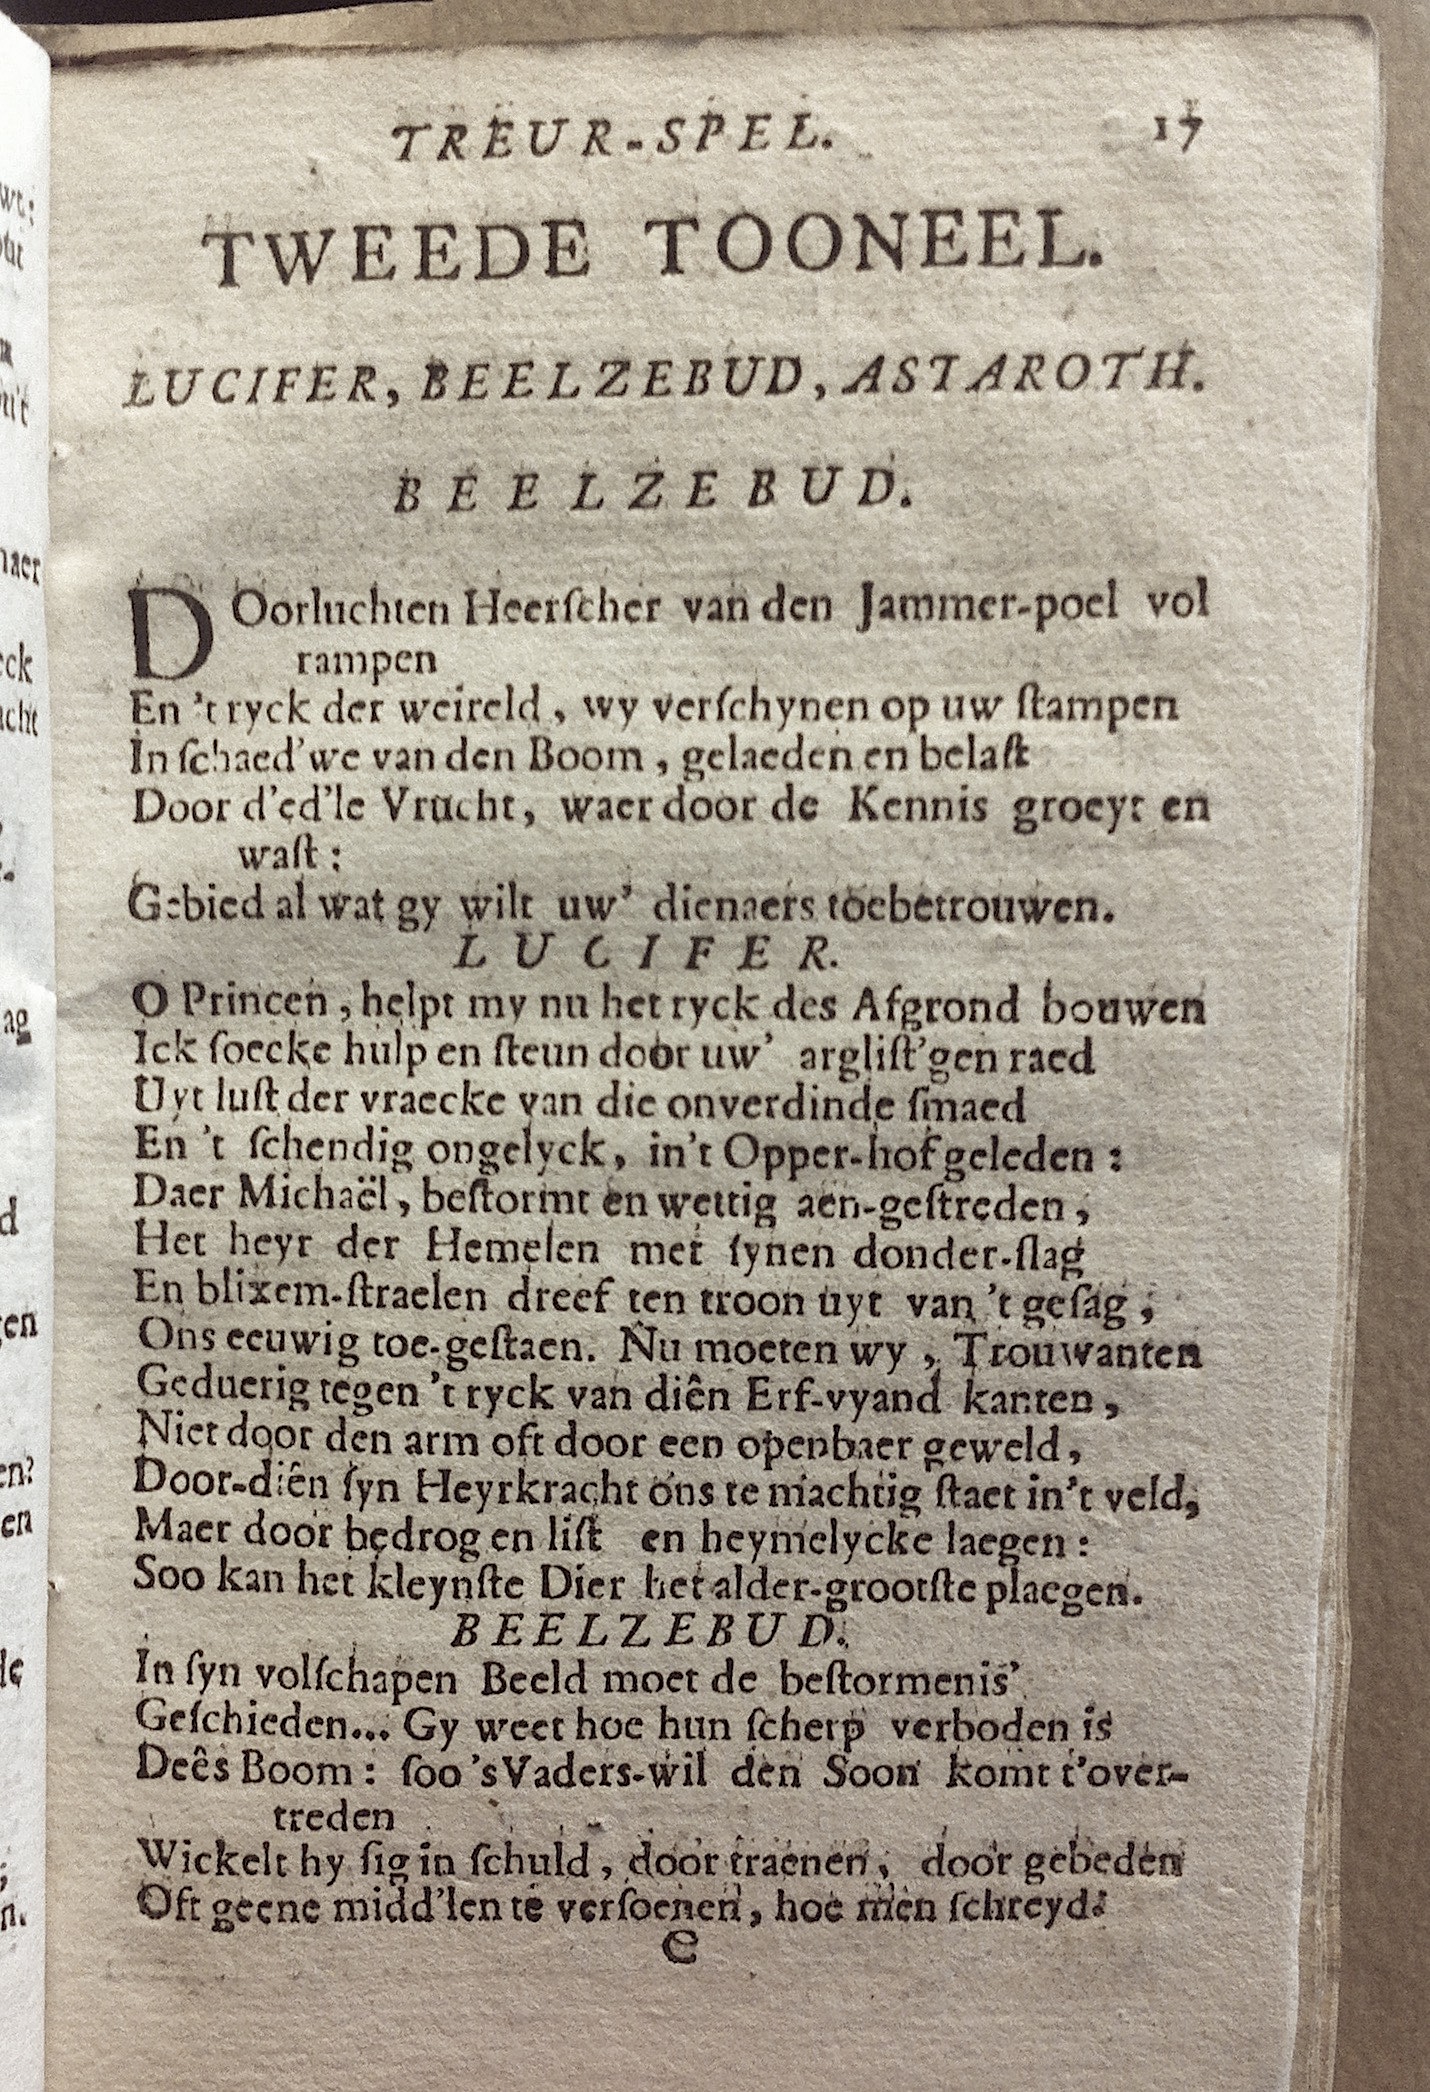 TREUR-SPEL. 17
TWEEDE TOONEEL.
LUCIFER, BEELZEBUD, ASTAROTH.
BEELZEBUD.
DOorluchten Heerſcher van den Jammer-poel vol
rampen
En 't ryck der weireld, wy verſchynen op uw ſtampen
In ſchaed'we van den Boom, gelaeden en belaſt
Door d'ed'le Vrucht, waer door de Kennis groeyt en
waſt:
Gebied al wat gy wilt uw' dienaers toebetrouwen.
LUCIFER.
O Princen, helpt my nu het ryck des Afgrond bouwen
Ick ſoecke hulp en ſteun door uw' argliſt'gen raed
Uyt luſt der vraecke van die onverdinde ſmaed
En 't ſchendig ongelyck, in't Opper-hof geleden:
Daer Michaël, beſtormt en wettig aen-geſtreden,
Het heyr der Hemelen met ſynen donder-ſlag
En blixem-ſtraelen dreef ten troon uyt van 't geſag,
Ons eeuwig toe-geſtaen. Nu moeten wy, Trouwanten
Geduerig tegen 't ryck van diên Erf-vyand kanten,
Niet door den arm oft door een openbaer geweld,
Door-diên ſyn Heyrkracht ons te machtig ſtaet in't veld,
Maer door bedrog en liſt en heymelycke laegen:
Soo kan het kleynſte Dier het alder-grootſte plaegen.
BEELZEBUD.
In ſyn volſchapen Beeld moet de beſtormenis'
Geſchieden... Gy weet hoe hun ſcherp verboden is
Deês Boom: ſoo 's Vaders-wil den Soon komt t'over-
treden
Wickelt hy ſig in ſchuld, door traenen, door gebeden
Oft geene midd'len te verſoenen, hoe men ſchreyd:
e